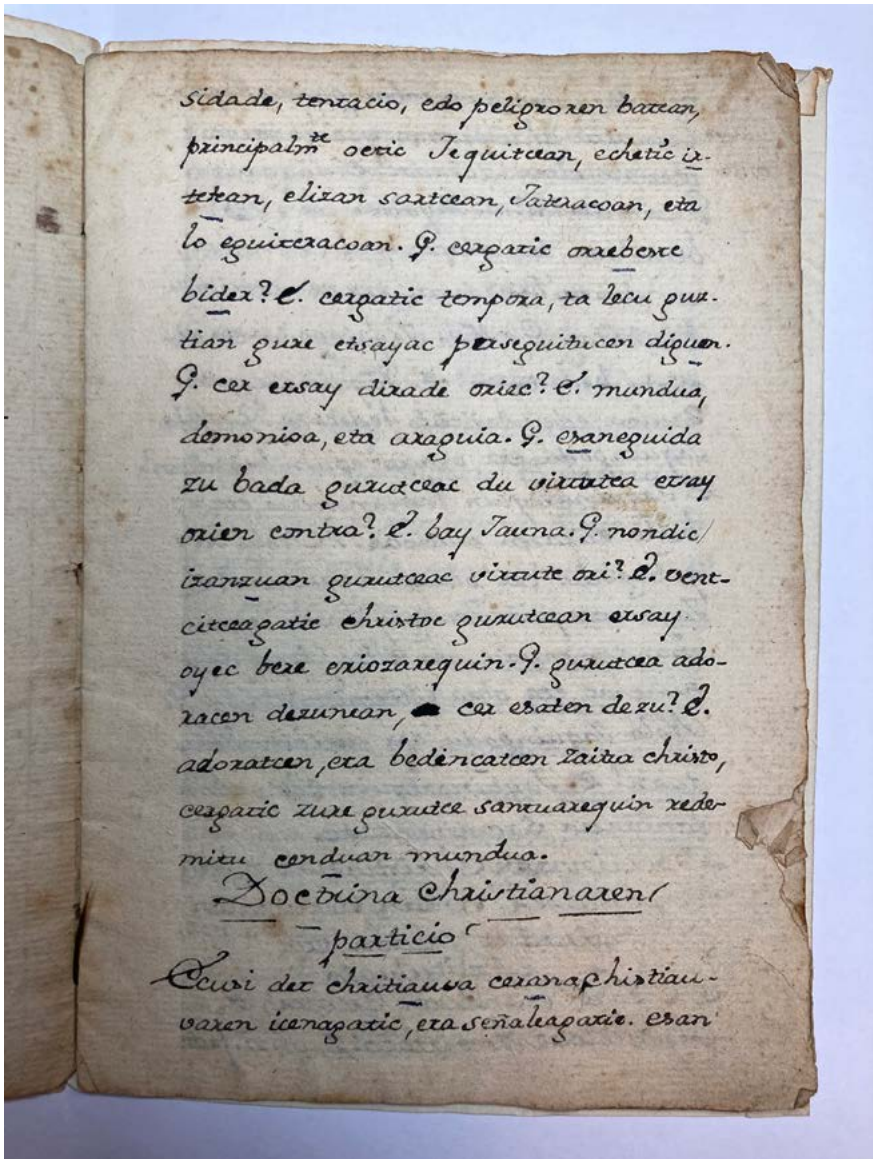 sidade, tentacio, edo peligroren batean,
principalmte oetic Jequitcean, echetic ir-
tetean, elizan sartcean, Jateracoan, eta
lo eguiteracoan. P. cergatic orrebeste
bider? E. cergatic tempora, ta lecu guz-
tian gure etsayac perseguitucen diguen.
P. cer etsay dirade oriec? E. mundua,
demonioa, eta araguia. P. esaneguida
zu bada gurutceac du virtutea etsay
orien contra? E. bay Jauna. P. nondic
izanzuan gurutceac virtute ori? E. vent-
citceagatic christoc gurutcean etsay
oyec bere eriozarequin. P. gurutcea ado-
racen dezunean, cer esaten dezu? E.
adoratcen, eta bedencatcen zaitut christo,
cergatic zure gurutce santuarequin rede-
mitu cenduan mundua.
Doctrina Christianaren
particio
Ecusi det chritiauva ceranachistiau-
varen icenagatic, eta señaleagatic. esan